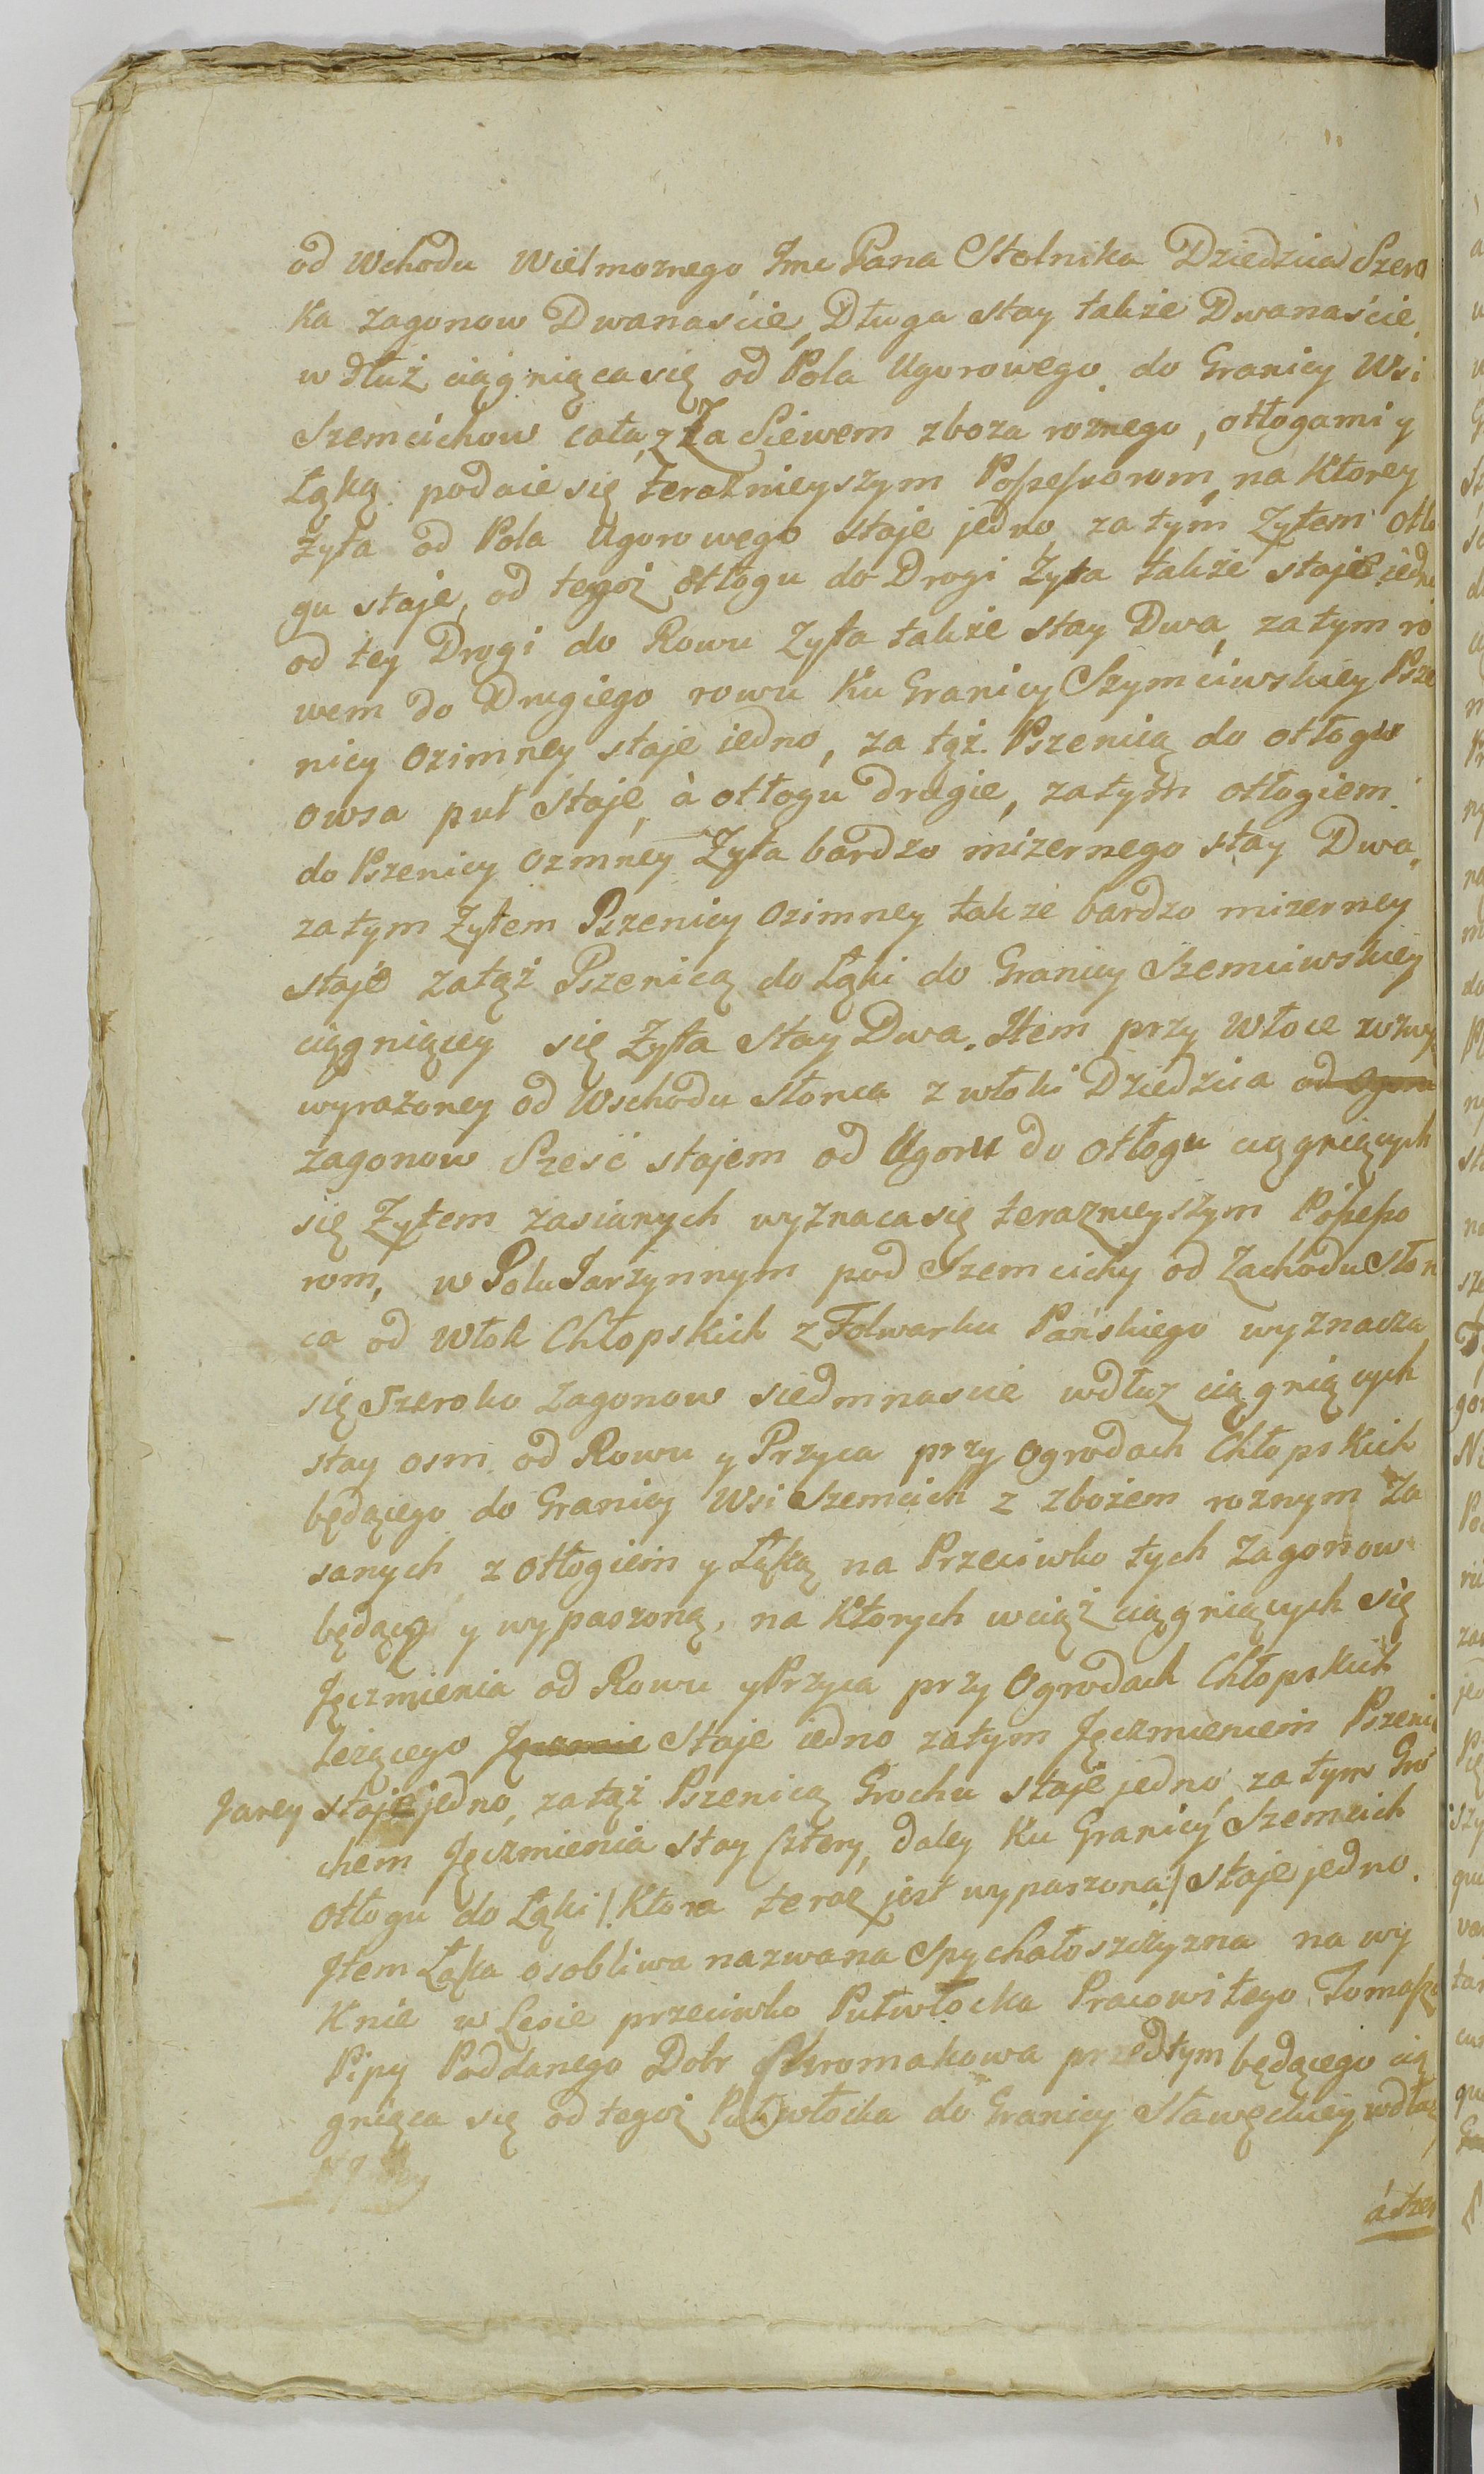 od Wchodu Wielmoznego Jmc Pana Stolnika Dziedzica Szero
ka zagonow Dwanaście, Długa stay także Dwanaście,
wdłuż ciągniąca się od Pola Ugorowego do Granicy Wsi
Szemcichow cała, z Za Siewem zboza roznego, otłogami y
Łąką podaie się teraznieyszym Possessorom, na ktorey
żyta od Pola Ugorowego staje jedno, za tym Żytem otło
gu staje, od tegoż otłogu do Drogi Żyta także staje jedno
od tey Drogi do Rowu Żyta także stay Dwa, za tym ro
wem do Drugiego rowu ku Granicy Szymciwskiey Psze
nicy Ozimney staje iedno, za tąż Pszenicą do otłogu
owsa puł staje, à otłogu drugie, za tym otłogiem
do Pszenicy ozmney Żyta bardzo mizernego stay Dwa,
za tym Żytem Pszenicy Ozimney także bardzo mizerney
staje za tąż Pszenicą do Łąki do Granicy Szemciwskiey
ciągniącey się Żyta stay Dwa. Item przy Włoce zwyz
wyrażoney od Wschodu Słonca z włoki Dziedzica od Ogoru
zagonow Sześć stajem od Ugoru do otłogu ciągniących
się Żytem zasianych wyznaca się teraznieyszym Possesso
rom, w Polu Jarzynnym pod Szemcichy od Zachodu Słon
ca od Włok Chłopskich z Folwarku Pańskiego wyznacza
się szeroko zagonow siedmnascie wdłuz ciągniących
stay osm od Rowu y Przyca przy ogrodach Chłopskich
będącego do Granicy Wsi Szemcich z zbożem roznym Za
sanych z otłogiem y Łąką na Przeciwko tych Zagonow
będącą y wypaszoną, na ktorych wciąż ciągniących się
Jęczmienia od Rowu y Przyca przy Ogrodach Chłopskich
leżącego Jęczmie Staje iedno za tym Jęczmieniem Pszenic
Jarey staje jedno, za tąż Pszenicą Grochu staje jedno za tym Gro
chem Jęczmienia stay Cztery, daley ku Granicy Szemcich
Otłogu do Łąki /: Ktora teraz jest wypaszona :/ staje jedno.
Item Łąka osobliwa nazwana Spychałoszczyzna na wy
Knie w Lesie przeciwko Pułwłocka Pracowitego Tomasza
Pipy Poddanego Dobr Skromakowa przedtym będącego cią
gniąca się od tegoż Pułwłocka do Granicy Sławęckiey wdłuz
à szer